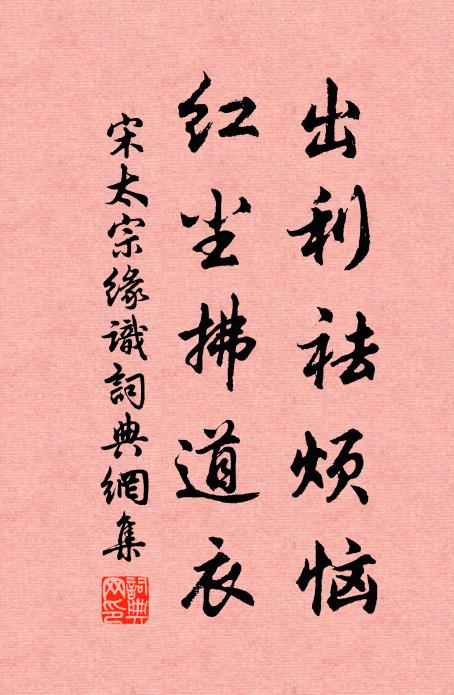 出利祛烦恼
红尘拂道衣
宋太宗缘識詞典網集
詞典网印